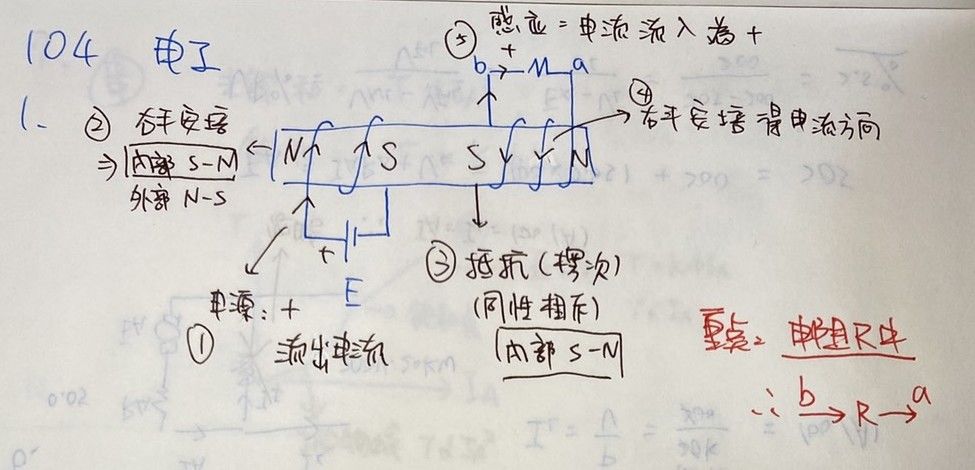 104 电子
1.
② 右手安培
⇒ 内部 S-N
外部 N-S
⑤ 感应 = 电流流入为 +
b + M a
④ 右手安培得电流方向
N S S N
+ E
电源: +
① 流出电流
③ 抵抗(楞次)
(同性相斥)
内部 S-N
重点: 电阻R中
∴ b → R → a